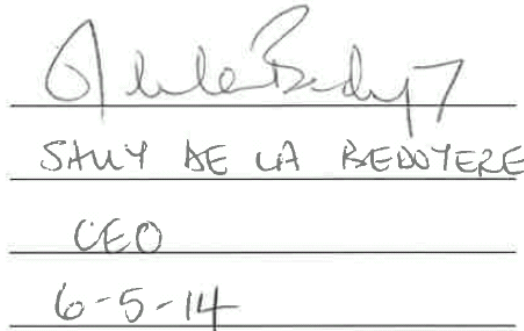 SALLY DE LA BEDOYERE
CEO
6-5-14